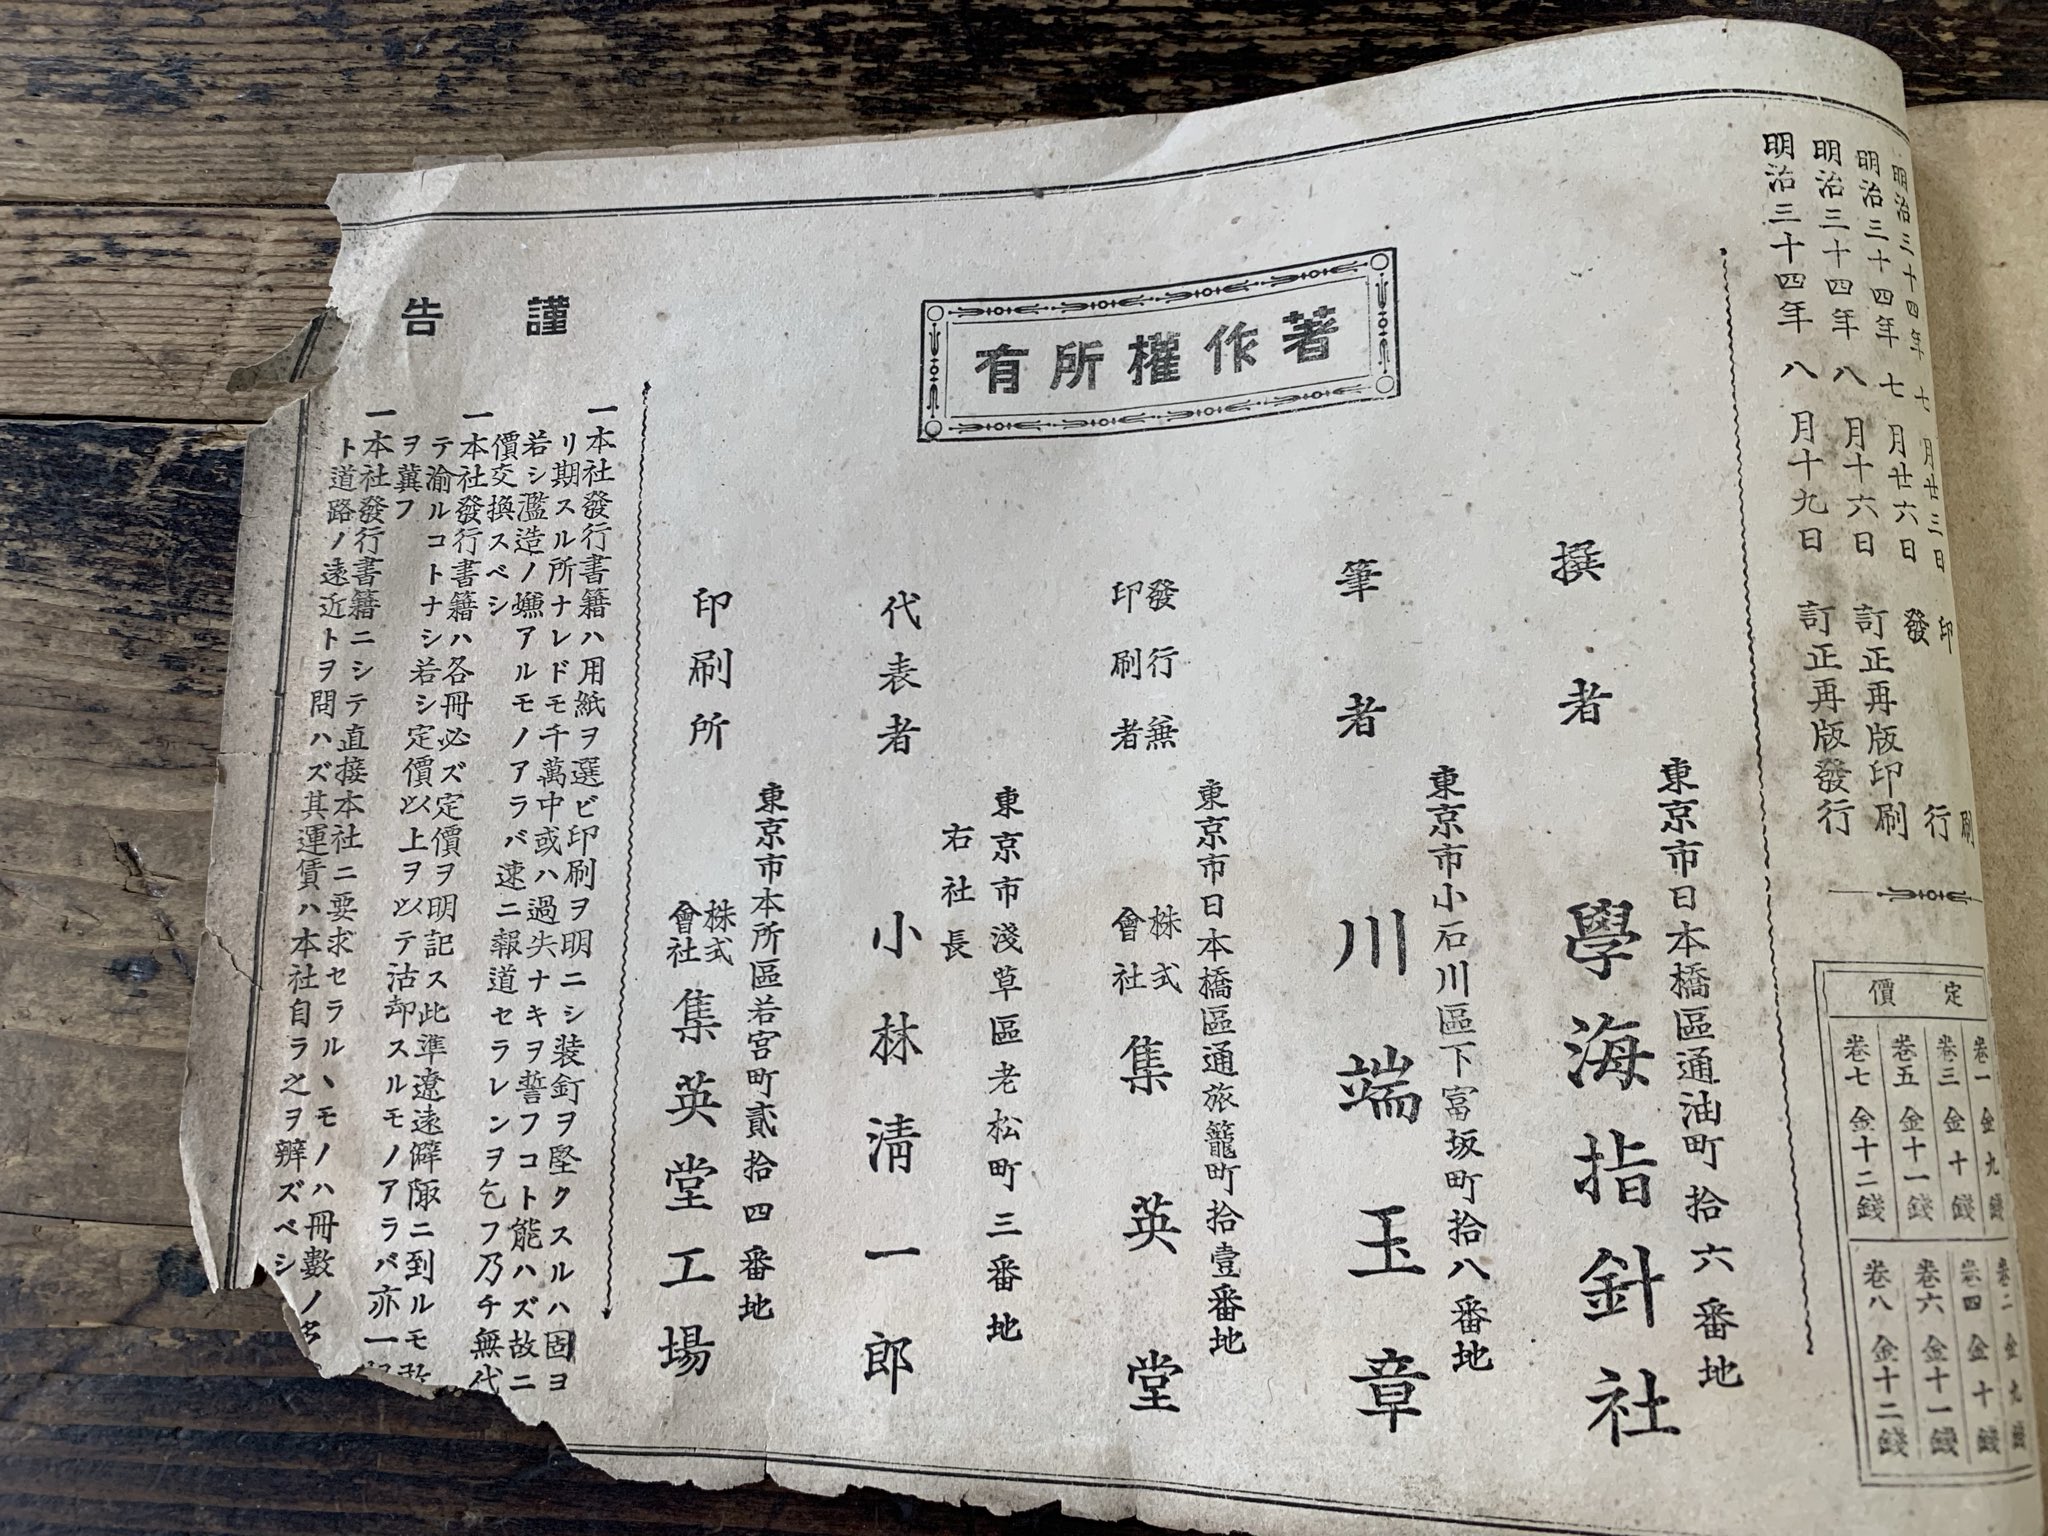 明治三十四年七月廿三日印刷
明治三十四年七月廿六日發行
明治三十四年八月十六日訂正再版印刷
明治三十四年八月十九日訂正再版發行
定價
卷一金九錢
卷三金十錢
卷五金十一錢
卷七金十二錢
卷二金九錢
卷四金十錢
卷六金十一錢
卷八金十二錢
著作權所有
東京市日本橋區通油町拾六番地
撰者 學海指針社
東京市小石川區下富坂町拾八番地
筆者 川端玉章
東京市日本橋區通旅籠町拾壹番地
發行兼印刷者 株式會社 集英堂
東京市淺草區老松町三番地
右社長
代表者 小林清一郎
東京市本所區若宮町貳拾四番地
印刷所 株式會社 集英堂工場
謹告
一本社發行書籍ハ用紙ヲ選ビ印刷ヲ明ニシ装釘ヲ堅クスルハ固ヨ
リ期スル所ナレドモ千萬中或ハ過失ナキヲ誓フコト能ハズ故ニ
若シ濫造ノ嫌アルモノアラバ速ニ報道セラレンヲ乞フ乃チ無代
價交換スベシ
一本社發行書籍ハ各冊必ズ定價ヲ明記ス此準遼遠僻陬ニ到ルモ
テ渝ルコトナシ若シ定價以上ヲ以テ沽却スルモノアラバ亦一
ヲ冀フ
一本社發行書籍ニシテ直接本社ニ要求セラルヽモノハ冊數ノ
ト道路ノ遠近トヲ問ハズ其運賃ハ本社自ラ之ヲ辨ズベシ